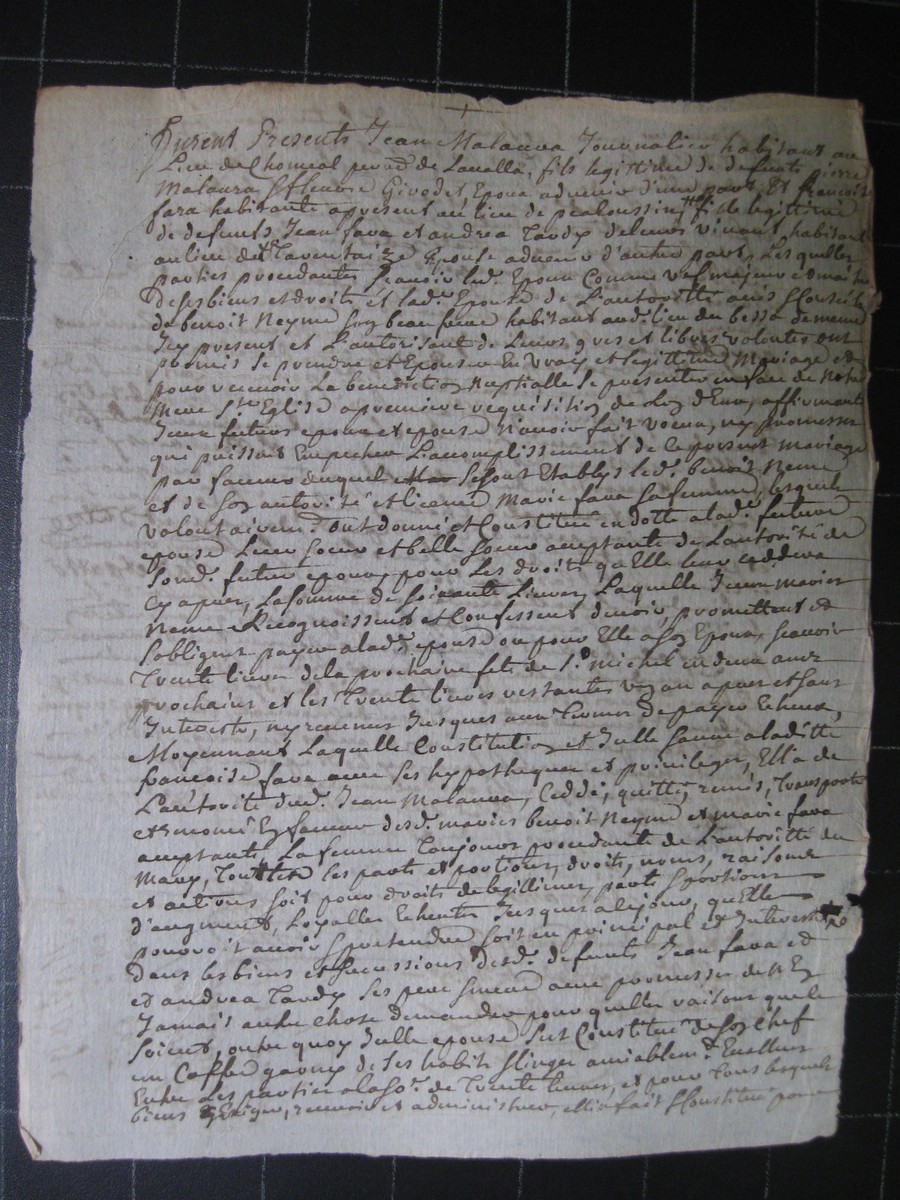 furent Presents Jean Malaura Journalier habitant au
Lieu de Chomeal parr. de Lavalla, fils legittime de defunts pierre
Malaura & fleurie Givodet Epoux advenir d'une part, Et françoise
fara habitante apresent au lieu de pealoussin, fille legittime
de defunts Jean fara et andrea Tardy deleurs vivant habitant
au lieu de Taventaize Epouse advenir d'autre part, Les quelles
parties procedantes scavoir led. Epoux Comme majeur et maitre
de ses biens et droits et lad. Epouse de L'autoritté avis & Conseil
de benoit Neyme son beau frere habitant aud. lieu du bessa de meme
Icy present et L'autorisant de Leurs grés et libres volontés ont
promis se prendre et Epouser En vray et legittime Mariage et
pour recevoir La benediction Nuptialle se presenter en face de Notre
Mere Ste. Eglise a premiere requisition de L'un d'Eux, affirmant
Iceux futurs epoux et epouse N'avoir fait voeux, ny promesses
qui puissent Empecher L'accomplissement de ce present mariage
par faveur duquel se sont Etablys led. benoit Neme
et de son autorité et licence Marie fara sa femme, lesquels
volontairemt. ont donné et Constitué en dotte a lad. future
epouse Leur soeur et belle soeur acceptante de L'autorité de
sond. futur epoux, pour Les droits qu'Elle leur ceddera
Cy apres, La somme de soixante Livres, Laquelle Iceux mariés
Neme Recognoissent et Confessent devoir, promettent et
s'obligent payer a lad. epouse ou pour Elle a son Epoux, scavoir
Trente livres dela prochaine fete de St. Michel en deux ans
prochains et les Trente livres restantes un an apres et sans
Interests, ny revenus Jusques aux Termes de payer Echeux,
Moyennant Laquelle Constitution et Icelle sauve a laditte
francoise fara avec ses hypotheques et privileges, Ell'a de
L'autorité dud. Jean Malaura, Ceddé, quitté, remis, Transporté
et En faveur desd. mariés benoit Neyme et marie fara
acceptants, La femme Toujours procedante de L'autoritté du
Mary, Touttes les parts et portions, droits, noms, raisons
et actions soit pour droits de legittime, parts & portions
d'augment, Loyalles Echeutes Jusques a ce jour, qu'elle
pourroit avoir & pretendre soit en principal et Interests
Dans les biens et successions desd. defunts Jean fara et
et andrea Tardy ses pere & mere avec promesse de n'En
Jamais autre chose demander pour quelles raisons que ce
soient, outre quoy Icelle epouse s'est Constitué de son Chef
un Coffre garny de ses habits & linges amiablemt. Evallués
Entre Les parties a la so. de Trente livres, et pour Tous lesquels
biens Exiger, recevoir et administrer, elle a fait & Constitué pour